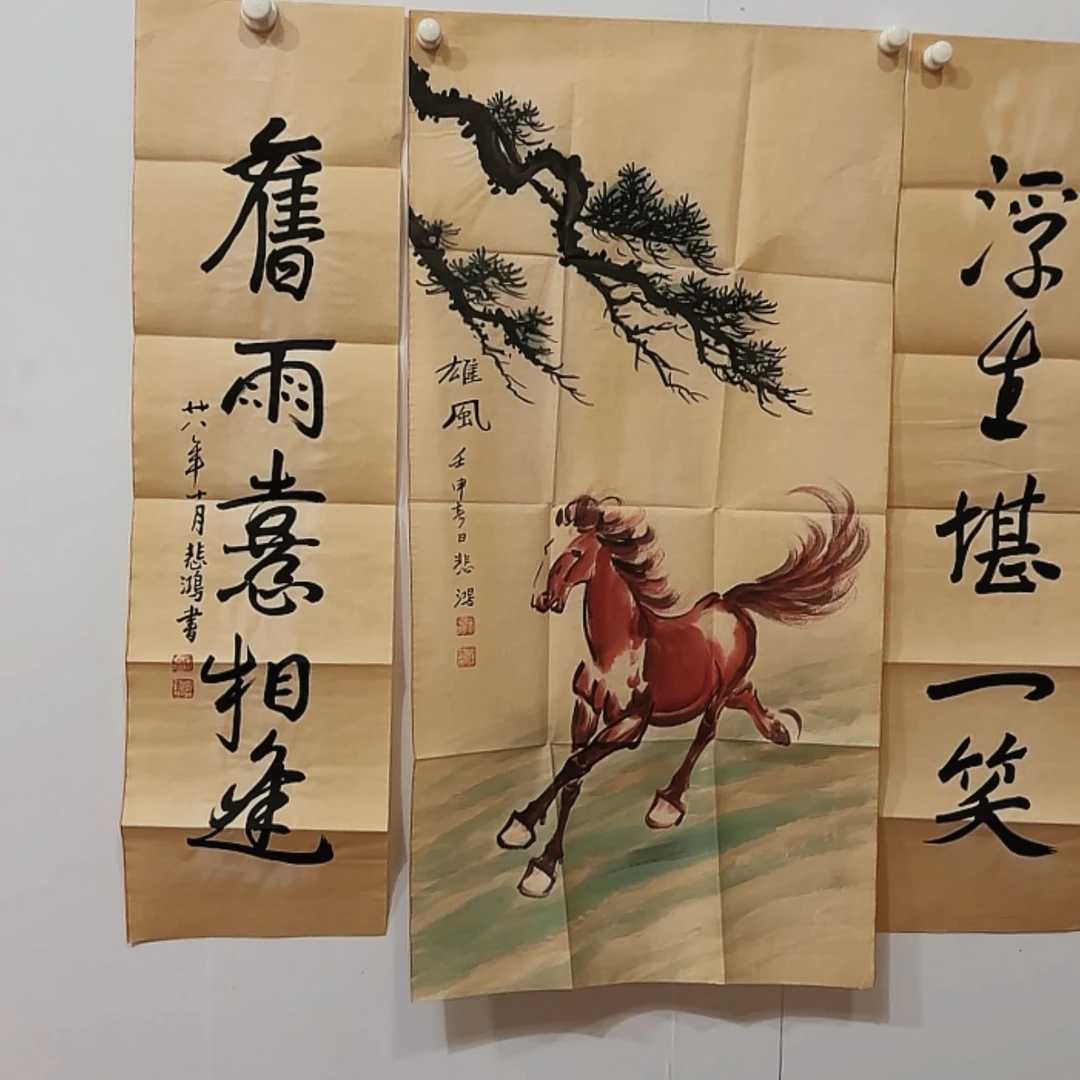 浮生堪一笑
雄風
壬申春日悲鴻
舊雨憙相逢
廿八年十月悲鴻書